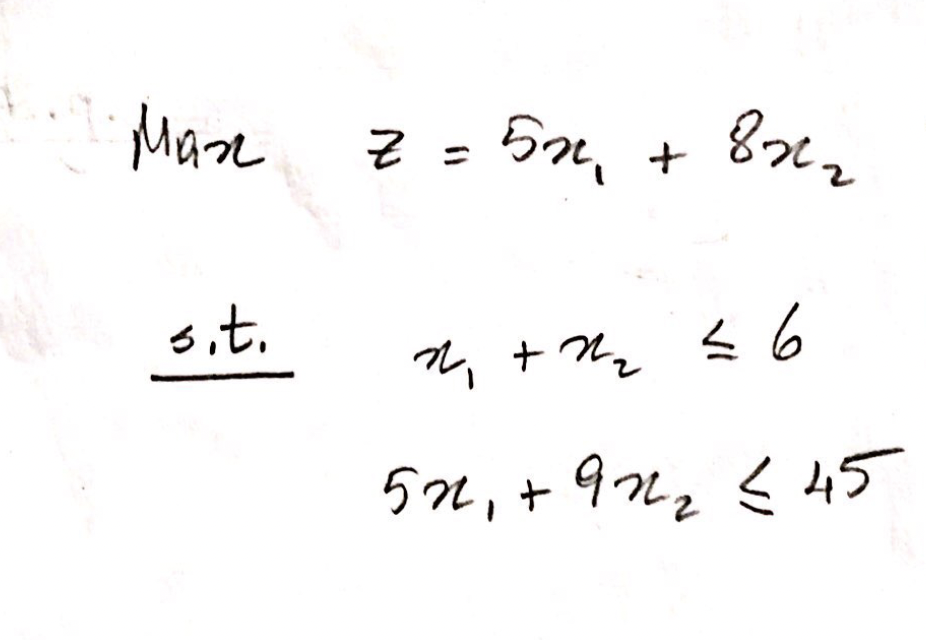 Max z = 5x₁ + 8x₂
s.t. x₁ + x₂ ≤ 6
5x₁ + 9x₂ ≤ 45